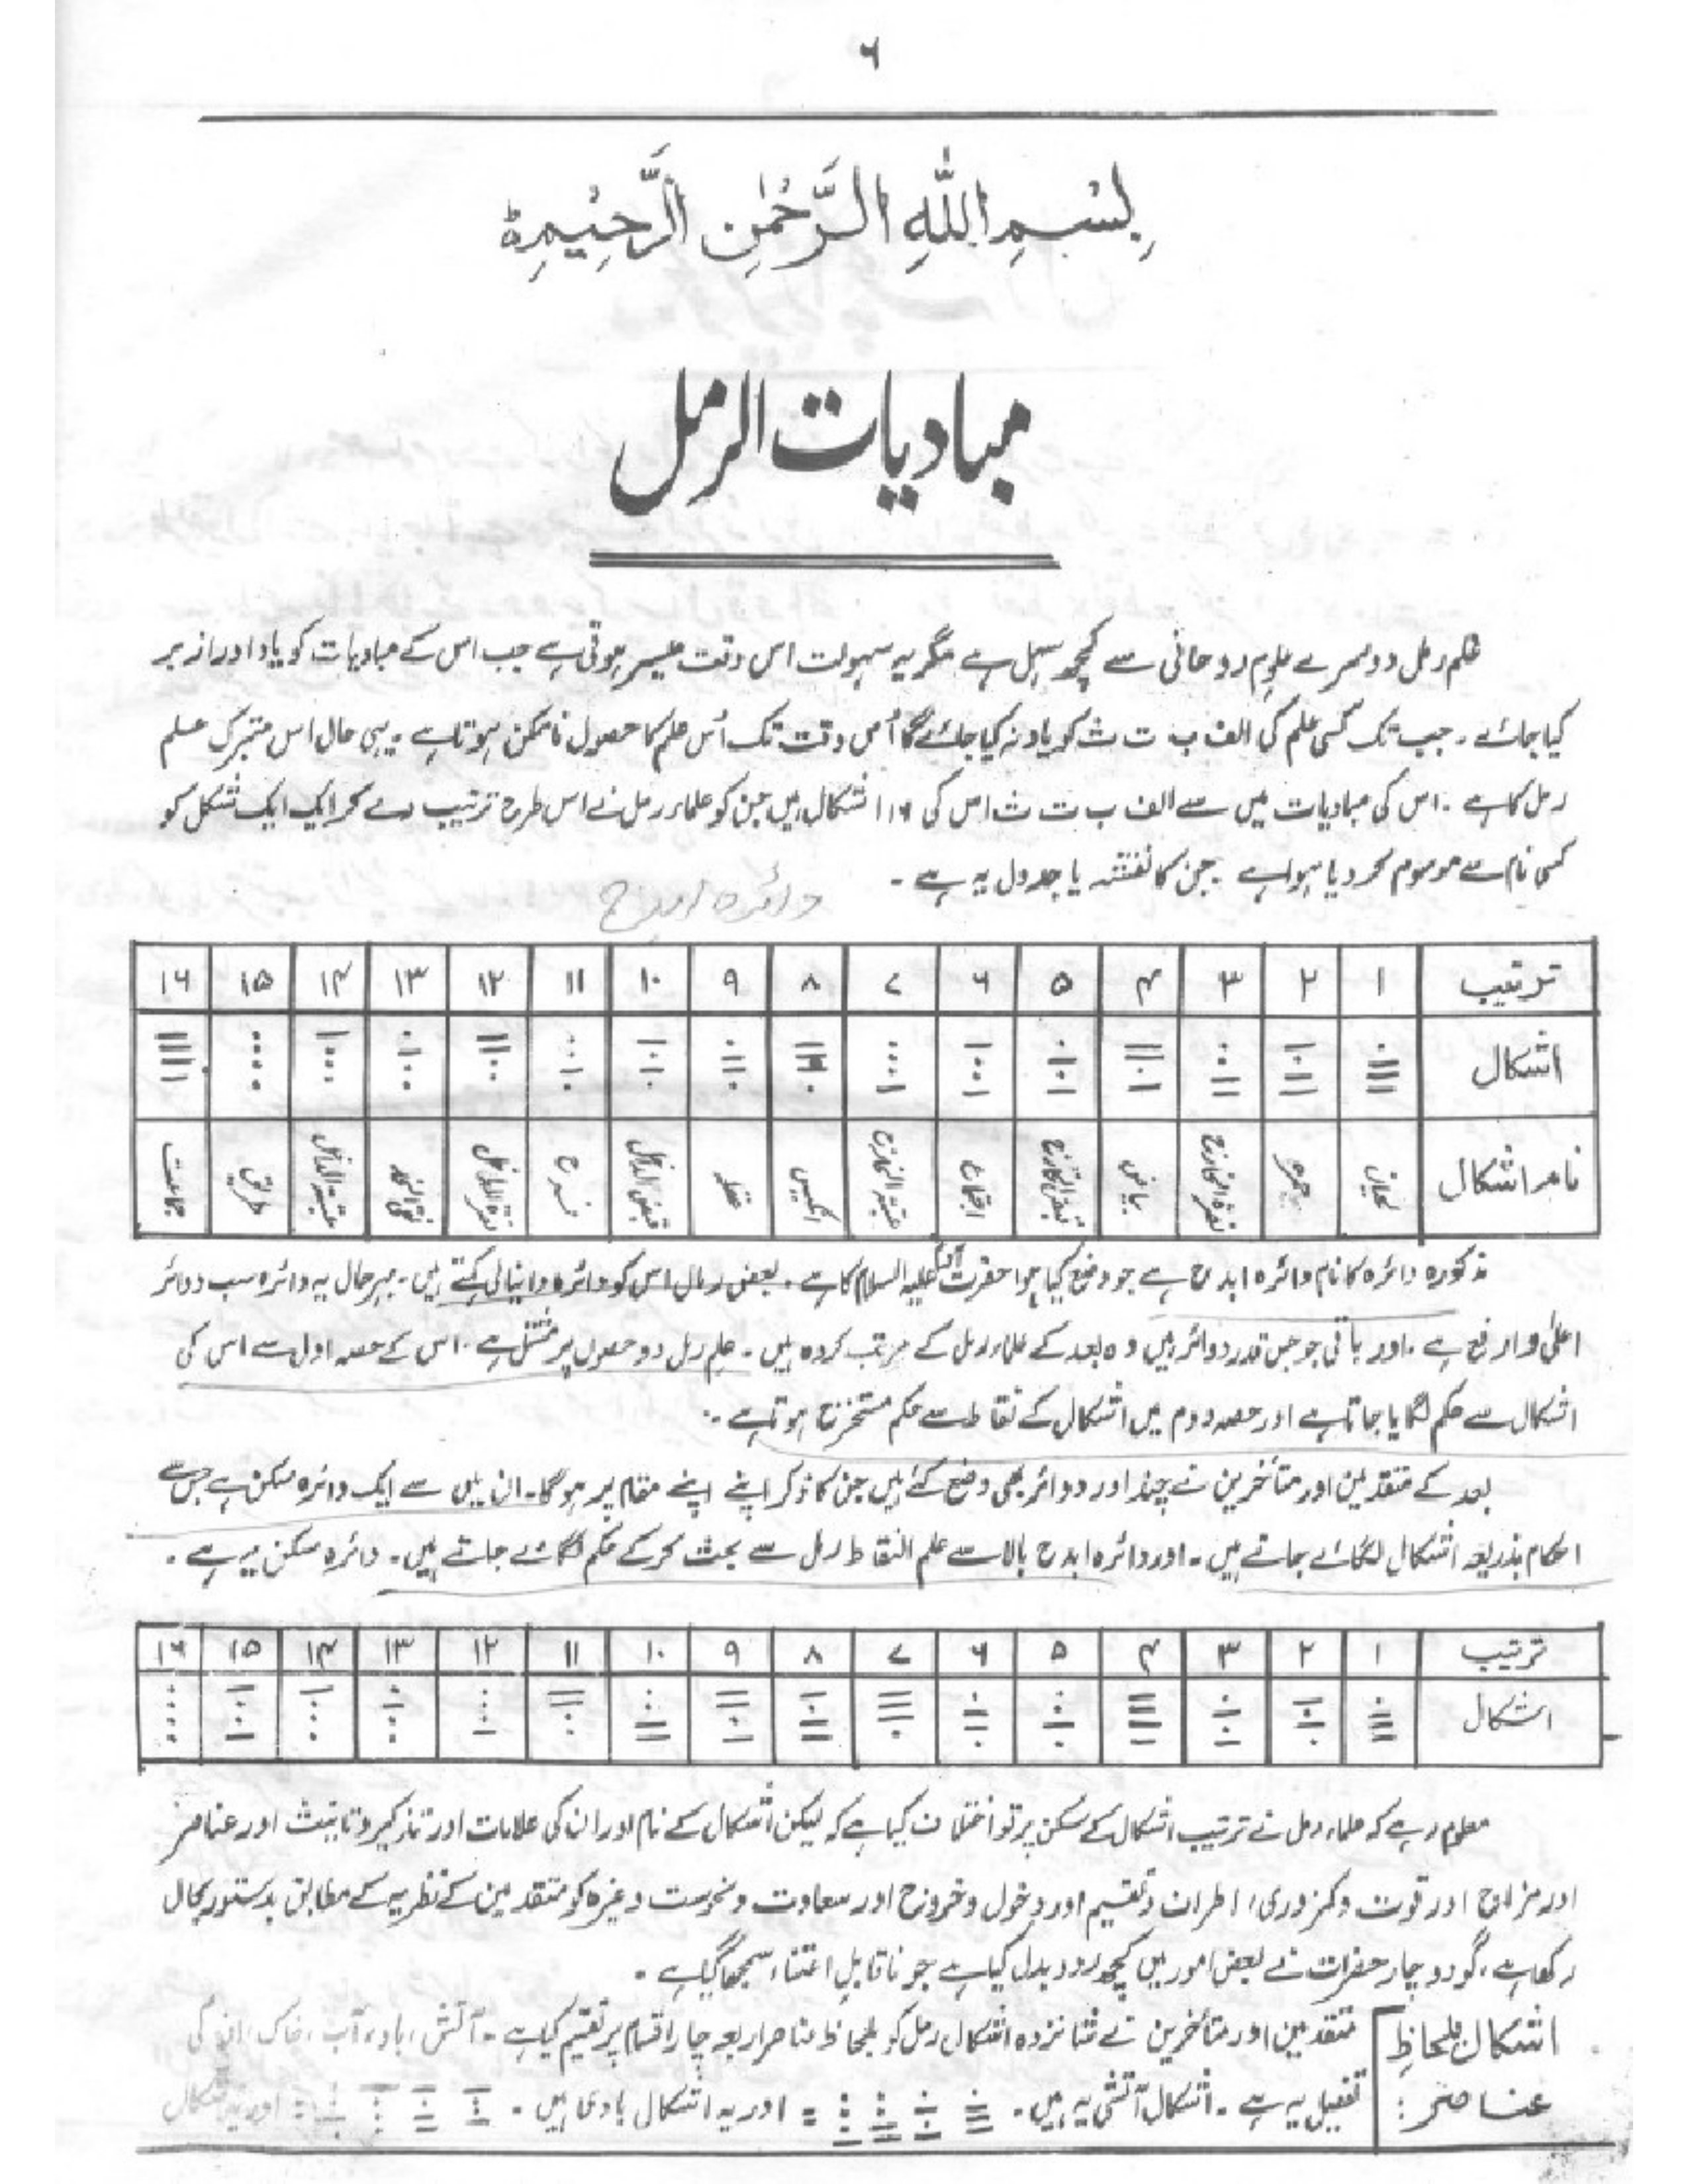 ۶
بِسْمِ اللّٰهِ الرَّحْمٰنِ الرَّحِیْمِ ط
مبادیات الرمل
علم رمل دوسرے علوم روحانی سے کچھ سہل ہے مگر یہ سہولت اس وقت میسر ہوتی ہے جب اس کے مبادیات کو یاد اور ازبر
کیا جائے ۔ جب تک کسی علم کی الف ب ت ث کو یاد نہ کیا جائے گا اُس وقت تک اُس علم کا حصول ناممکن ہوتا ہے ۔ یہی حال اس متبرک علم
رمل کا ہے ۔ اس کی مبادیات میں سے الف ب ت ث اس کی ۱۶ اشکال ہیں جن کو علماء رمل نے اس طرح ترتیب دے کر ایک ایک شکل کو
کسی نام سے موسوم کر دیا ہوا ہے ۔ جن کا نقشہ یا جدول یہ ہے ۔
دائرہ ابدح
ترتیب ۱ ۲ ۳ ۴ ۵ ۶ ۷ ۸ ۹ ۱۰ ۱۱ ۱۲ ۱۳ ۱۴ ۱۵ ۱۶
اشکال
نام اشکال لحیان حمرہ نصرۃ الخارج بیاض قبض الخارج اجتماع عتبۃ الخارج انکیس عقلہ قبض الداخل فرح نصرۃ الداخل نقی الخد عتبۃ الداخل طریق جماعت
مذکورہ دائرہ کا نام دائرہ ابدح ہے جو وضع کیا ہوا حضرت آدم علیہ السلام کا ہے ۔ بعض رمال اس کو دائرہ دانیالی کہتے ہیں ۔ بہرحال یہ دائرہ سب دوائر
اعلیٰ و ارفع ہے ۔ اور باقی جو جس قدر دوائر ہیں وہ بعد کے علماء رمل کے مرتب کردہ ہیں ۔ علم رمل دو حصوں پر مشتمل ہے ۔ اس کے حصہ اول سے اس کی
اشکال سے حکم لگایا جاتا ہے اور حصہ دوم میں اشکال کے نقاط سے حکم مستخرج ہوتا ہے ۔
بعد کے متقدمین اور متأخرین نے چند اور دوائر بھی وضع کئے ہیں جن کا ذکر اپنے اپنے مقام پر ہوگا ۔ ان میں سے ایک دائرہ سکن ہے جس سے
احکام بذریعہ اشکال لگائے جاتے ہیں ۔ اور دائرہ ابدح بالا سے علم النقاط رمل سے بحث کر کے حکم لگائے جاتے ہیں ۔ دائرہ سکن یہ ہے ۔
ترتیب ۱ ۲ ۳ ۴ ۵ ۶ ۷ ۸ ۹ ۱۰ ۱۱ ۱۲ ۱۳ ۱۴ ۱۵ ۱۶
اشکال
معلوم رہے کہ علماء رمل نے ترتیب اشکال کے سکن پر تو اختلاف کیا ہے کہ لیکن اشکال کے نام اور ان کی علامات اور تذکیر و تانیث اور عناصر
اور مزاج اور قوت و کمزوری، اطراف و تقسیم اور دخول و خروج اور سعادت و نحوست وغیرہ کو متقدمین کے نظریہ کے مطابق بدستور بحال
رکھا ہے، گو دو چار حضرات نے بعض امور میں کچھ رد و بدل کیا ہے جو ناقابلِ اعتناء سمجھا گیا ہے ۔
اشکال بلحاظِ عناصر :
متقدمین اور متأخرین نے شانزدہ اشکال رمل کو بلحاظ عناصر اربعہ چار اقسام پر تقسیم کیا ہے ۔ آتش، باد، آب، خاک، ان کی
تفصیل یہ ہے ۔ اشکال آتشی یہ ہیں ۔ = اور یہ اشکال بادی ہیں ۔ = اور یہ اشکال